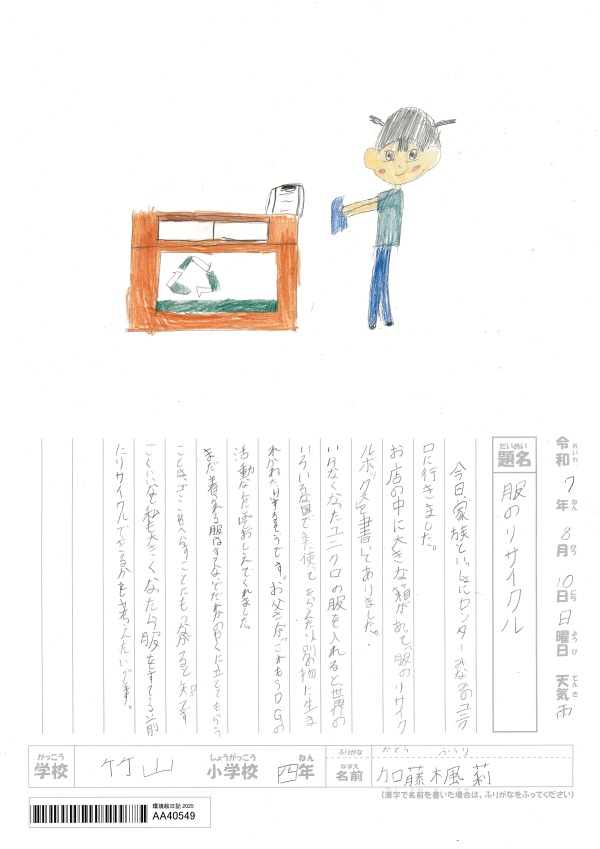 令和 7年 8月 10日 日曜日 天気 雨
れいわ ねん がつ にち ようび てんき
だいめい
題名 服のリサイクル
今日、家族といっしょにセンターみなみのユニク
ロに行きました。
お店の中に大きな箱があって、服のリサイク
ルボックスと書いてありました。
いらなくなったユニクロの服を入れると、世界の
いろいろな国で使ってもらえたり、別の物に生ま
れかわったりするそうです。お父さんが、これもSDGsの
活動なんだよとおしえてくれました。
まだ着れる服はすてないでだれかのやくに立ててもらう
ことは、ごみをへらすことにもつながると知って、す
ごくいいなと私も大きくなったら服をすてる前
にリサイクルできるかを考えたいです。
がっこう
学校 竹山 小学校 四年
しょうがっこう ねん
ふりがな かとう ふうり
なまえ
名前 加藤楓莉
(漢字で名前を書いた場合は、ふりがなをふってください)
環境絵日記 2025
AA40549